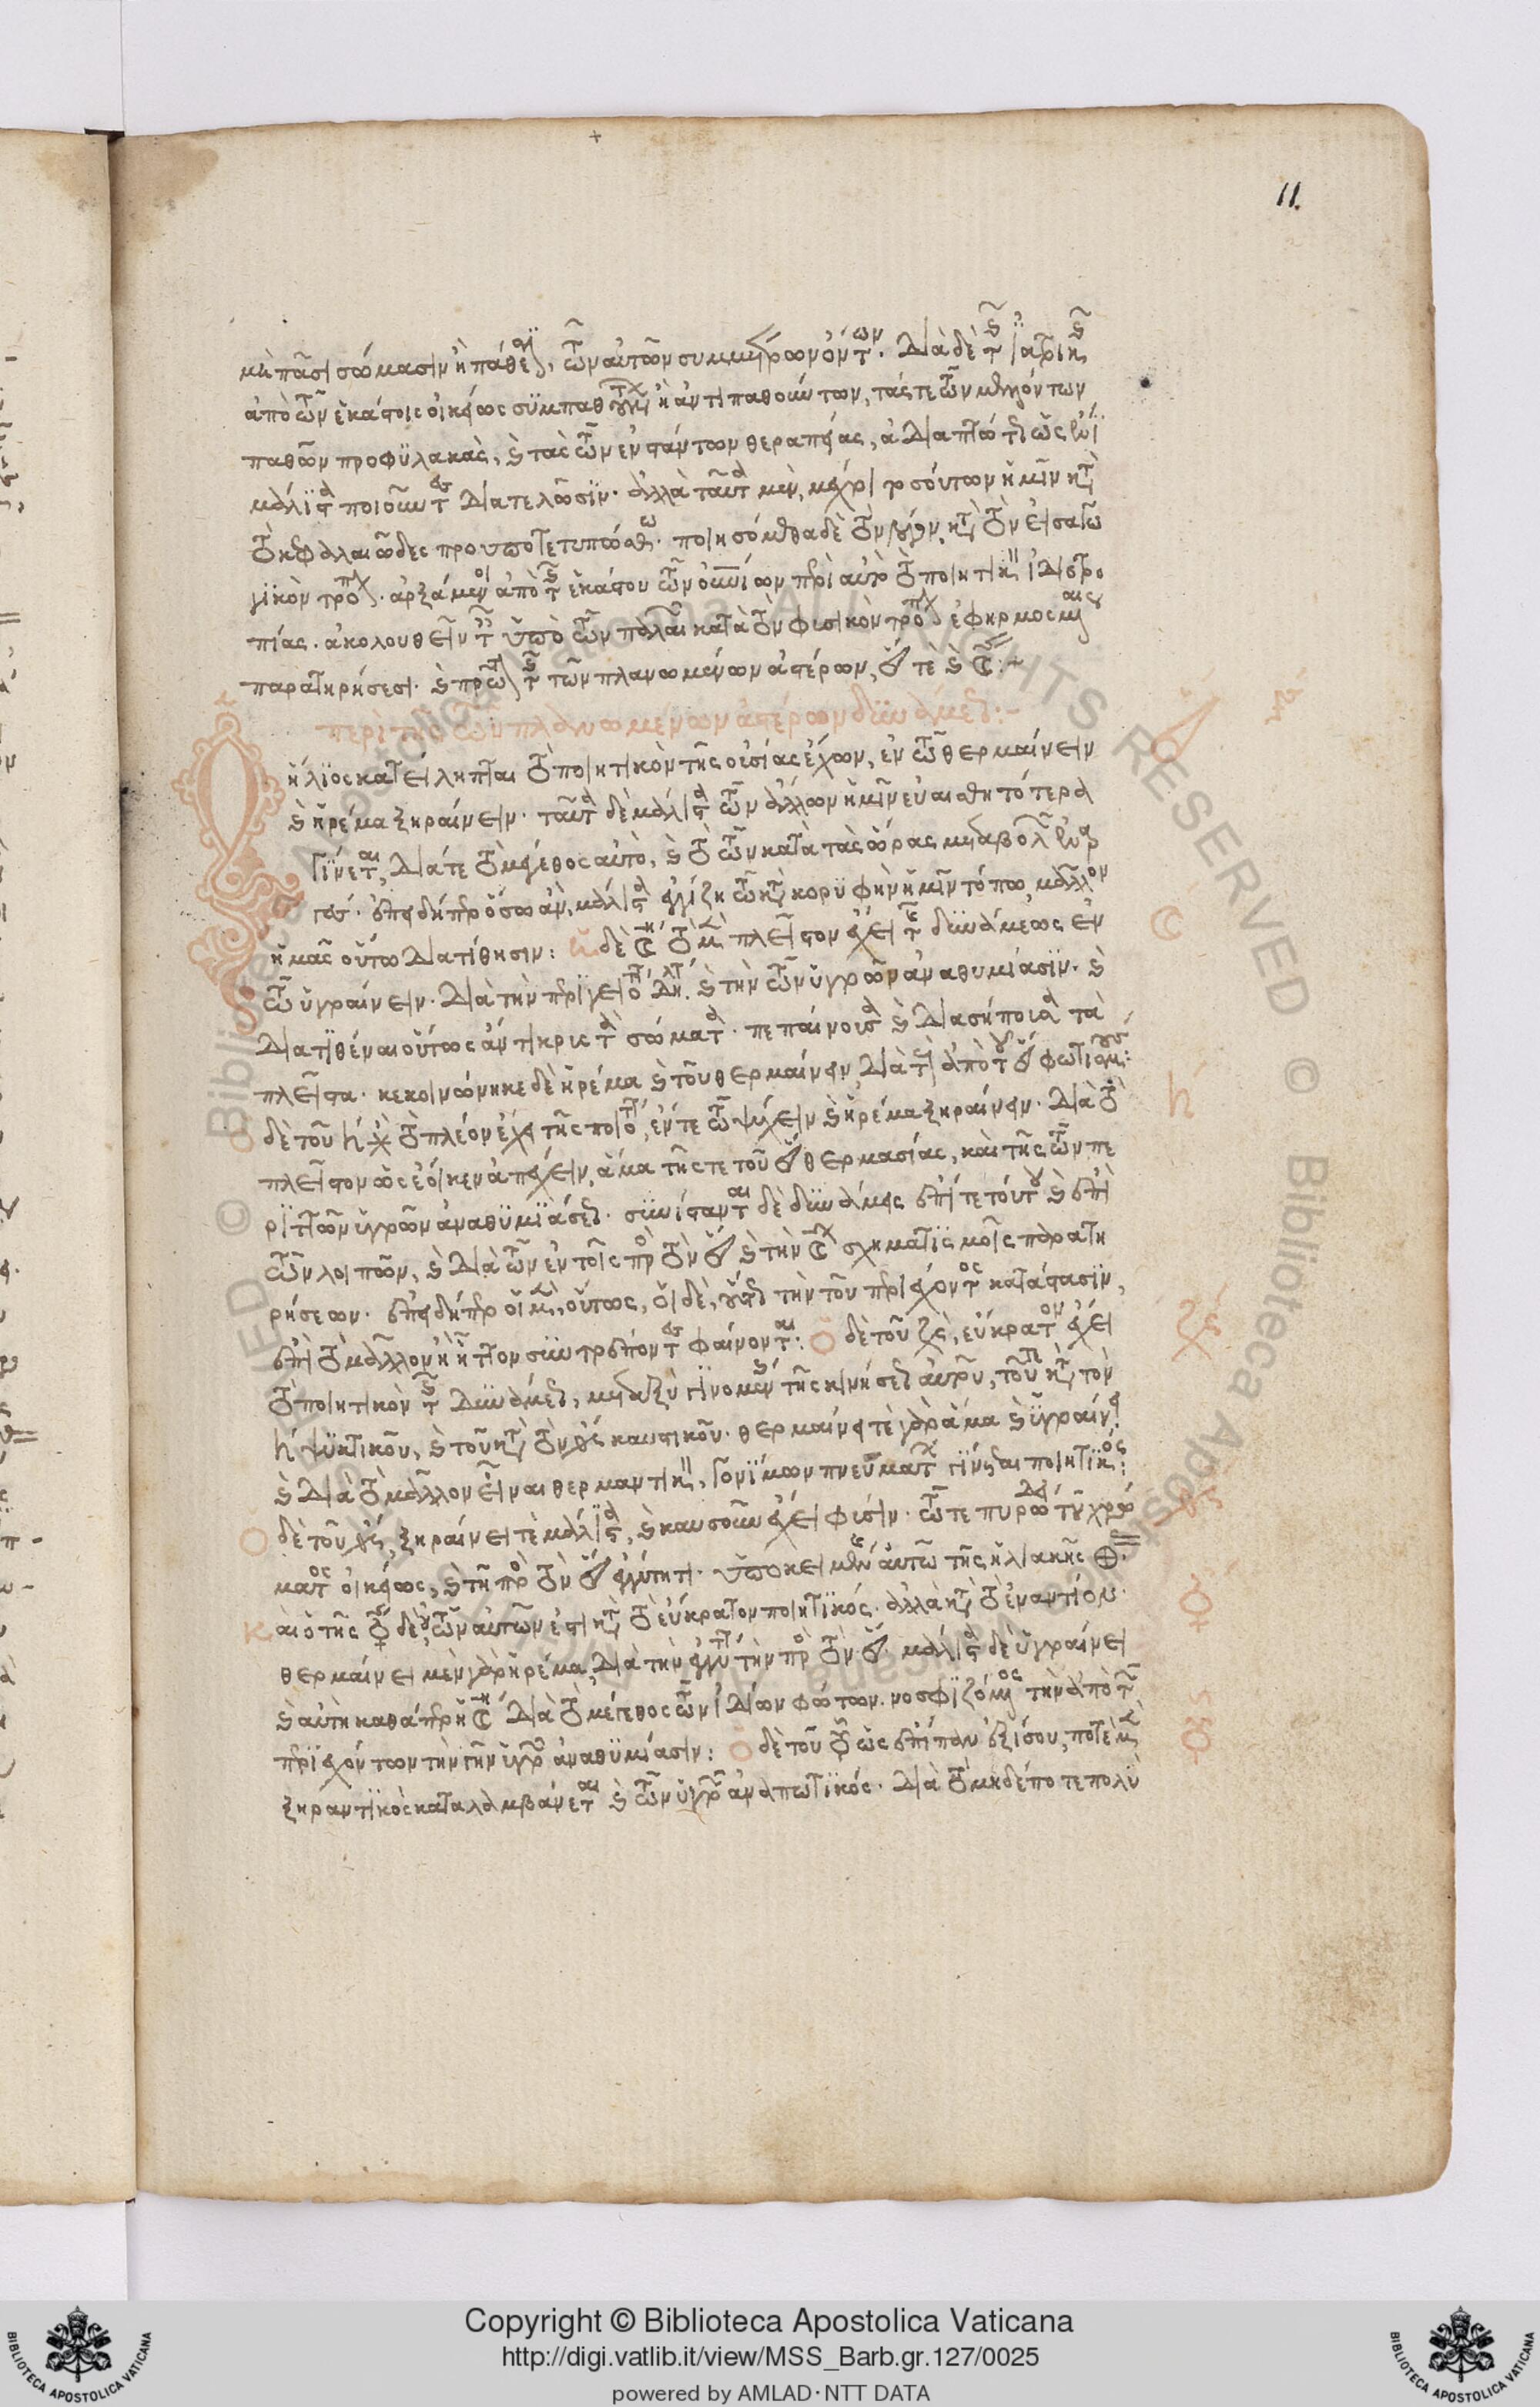 11.
μὴ πᾶσι σώμασιν ἢ πάθεσι, τῶν αὐτῶν συμμέτρων ὄντων. διὰ δὲ τῆς ἰατρικῆς
ἀπὸ τῶν ἑκάστοις οἰκείως συμπαθούντων ἢ ἀντιπαθούντων, τάς τε τῶν μελλόντων
παθῶν προφυλακὰς, καὶ τὰς τῶν ἐνστάντων θεραπείας, ἀδιαπτώτως ὡς ἔνι
μάλιστα ποιοῦντες διατελῶσιν. ἀλλὰ ταῦτα μὲν, μέχρι τοσούτων ἡμῖν κατὰ
τὸ κεφαλαιῶδες προϋποτετυπώσθω. ποιησόμεθα δὲ τὸν λόγον, κατὰ τὸν εἰσαγω
γικὸν τρόπον. ἀρξάμενοι ἀπὸ τῆς ἑκάστου τῶν οὐρανίων περὶ αὐτὸ τὸ ποιητικὸν ἰδιοτρο
πίας. ἀκολούθως ταῖς ὑπὸ τῶν παλαιῶν κατὰ τὸν φυσικὸν τρόπον ἐφηρμοσμέναις
παρατηρήσεσι. καὶ πρώταις τῶν πλανωμένων ἀστέρων, ☉ τε καὶ ☾:~
περὶ τῆς τῶν πλανωμένων ἀστέρων δυνάμεως:~
ἥλιος κατείληπται τὸ ποιητικὸν τῆς οὐσίας ἔχων, ἐν τῷ θερμαίνειν
καὶ ἠρέμα ξηραίνειν. ταῦτα δὲ μάλιστα τῶν ἄλλων ἡμῖν εὐαισθητότερα
γίνεται, διά τε τὸ μέγεθος αὐτοῦ, καὶ τὸ τῶν κατὰ τὰς ὥρας μεταβολῶν ἐναρ
γές. ἐπειδήπερ ὅσῳ ἂν, μάλιστα ἐγγίζῃ τῷ κατὰ κορυφὴν ἡμῖν τόπῳ, μᾶλλον
ἡμᾶς οὕτω διατίθησιν: ἡ δὲ ☾ τὸ μὲν πλεῖστον ἔχει τῆς δυνάμεως ἐν
τῷ ὑγραίνειν. διὰ τὴν περιγειότητα δηλονότι καὶ τὴν τῶν ὑγρῶν ἀναθυμίασιν. καὶ
διατιθέναι οὕτως ἄντικρυς τὰ σώματα. πεπαίνουσα καὶ διασήπουσα τὰ
πλεῖστα. κεκοινώνηκε δὲ ἠρέμα καὶ τοῦ θερμαίνειν, διὰ τοὺς ἀπὸ τοῦ ☉ φωτισμούς:
ὁ δὲ τοῦ ♄ ἀστὴρ τὸ πλέον ἔχει τῆς ποιότητος, ἔν τε τῷ ψύχειν καὶ ἠρέμα ξηραίνειν. διὰ τὸ
πλεῖστον ὡς ἔοικεν ἀπέχειν, ἅμα τῆς τε τοῦ ☉ θερμασίας, καὶ τῆς τῶν πε
ρὶ τὴν γῆν ὑγρῶν ἀναθυμιάσεως. συνίστανται δὲ δυνάμεις ἐπί τε τούτου καὶ ἐπὶ
τῶν λοιπῶν, καὶ διὰ τῶν ἐν τοῖς πρὸς τὸν ☉ καὶ τὴν ☾ σχηματισμοῖς παρατη
ρήσεων. ἐπειδήπερ οἱ μὲν, οὕτως, οἱ δὲ, οὕτως τὴν τοῦ περιέχοντος κατάστασιν,
ἐπὶ τὸ μᾶλλον ἢ ἧττον συντρέποντες φαίνονται: ὁ δὲ τοῦ ζεὺς, εὔκρατον ἔχει
τὸ ποιητικὸν τῆς δυνάμεως, μεταξὺ γινομένης τῆς κινήσεως αὐτοῦ, τοῦ τε κατὰ τὸν
♄ ψυκτικοῦ, καὶ τοῦ κατὰ τὸν ♂ καυστικοῦ. θερμαίνει τε γὰρ ἅμα καὶ ὑγραίνει.
καὶ διὰ τὸ μᾶλλον εἶναι θερμαντικὸς, γονίμων πνευμάτων γίνεται ποιητικός:
ὁ δὲ τοῦ ♂, ξηραίνει τε μάλιστα, καὶ καυσοῦν ἔχει φύσιν. τῷ τε πυρώδει τοῦ χρώ
ματος οἰκείως, καὶ τῇ πρὸς τὸν ☉ ἐγγύτητι. ὑποκειμένης αὐτῷ τῆς ἡλιακῆς ⊕.
καὶ ὁ τῆς ♀ δὲ, τῶν αὐτῶν ἐστι κατὰ τὸ εὔκρατον ποιητικός. ἀλλὰ κατὰ τὸ ἐναντίον.
θερμαίνει μὲν γὰρ ἠρέμα, διὰ τὴν ἐγγύτητα τὴν πρὸς τὸν ☉. μάλιστα δὲ ὑγραίνει
καὶ αὐτὴ καθάπερ ἡ ☾ διὰ τὸ μέγεθος τῶν ἰδίων φώτων. νοσφιζόμενος τὴν ἀπὸ τῶν
περιεχόντων τὴν γῆν ὑγρῶν ἀναθυμίασιν: ὁ δὲ τοῦ ☿ ὡς ἐπίπαν ἐξίσου, ποτὲ μὲν
ξηραντικὸς καταλαμβάνεται καὶ τῶν ὑγρῶν ἀναπωτικός. διὰ τὸ μηδέποτε πολὺ
Copyright © Biblioteca Apostolica Vaticana
http://digi.vatlib.it/view/MSS_Barb.gr.127/0025
powered by AMLAD·NTT DATA